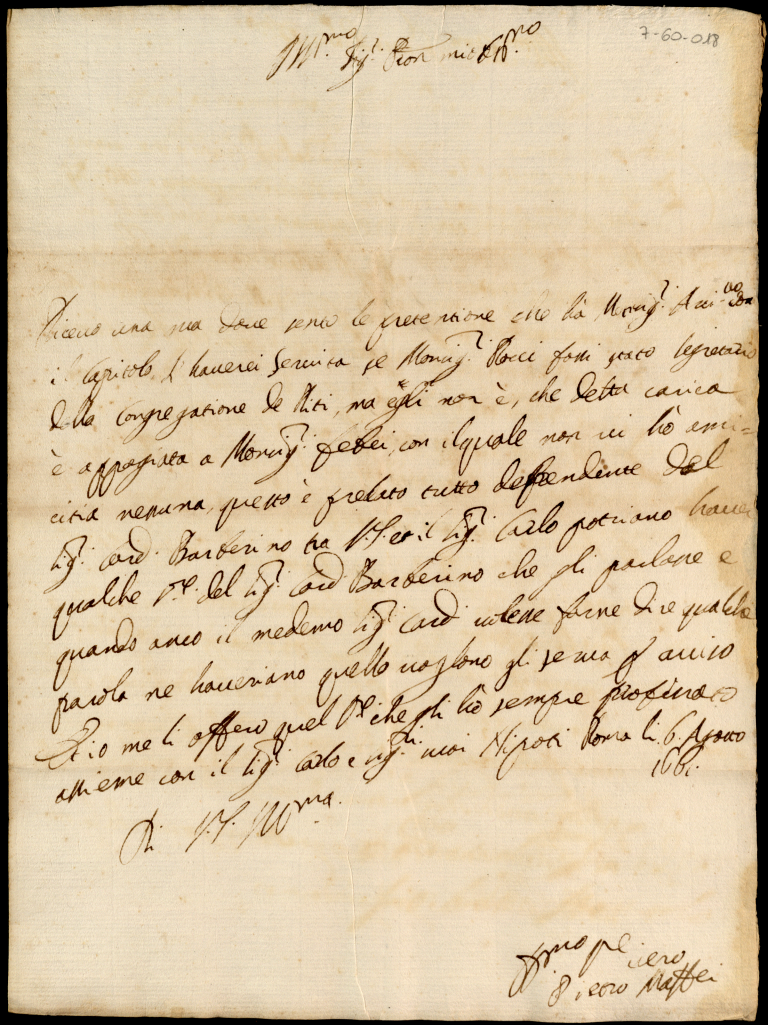 7-60-018
Ill.mo Sig.r Pron mio
Ricevo una sua dove sento le pretentione che hà Monsig.r
il Capitolo d'haverci servita se Monsig.r Rocci fossi stato segretario
della Congregatione de Riti, ma egli non è, che detta carica
è appogiata a Monsig.r Febei, con il quale non vi hò ami=
citia nessuna, questo è prelato tutto dependente del
Sig.r Card. Barberino tra V.S. et il Sig.r Carlo potriano haver
qualche del Sig.r Card Barberino che gli parlase e
quando anco il medemo Sig.r Card volesse farne dire qualche
parola ne haveriano quello vogliono gli serva p aviso
Et io me li offero quel che gli hò sempre profesato
assieme con il Sig.r Carlo e suoi Nipoti Roma li 6 Agosto
1661.
Di V.S. Ill.ma
Pietro Maffei